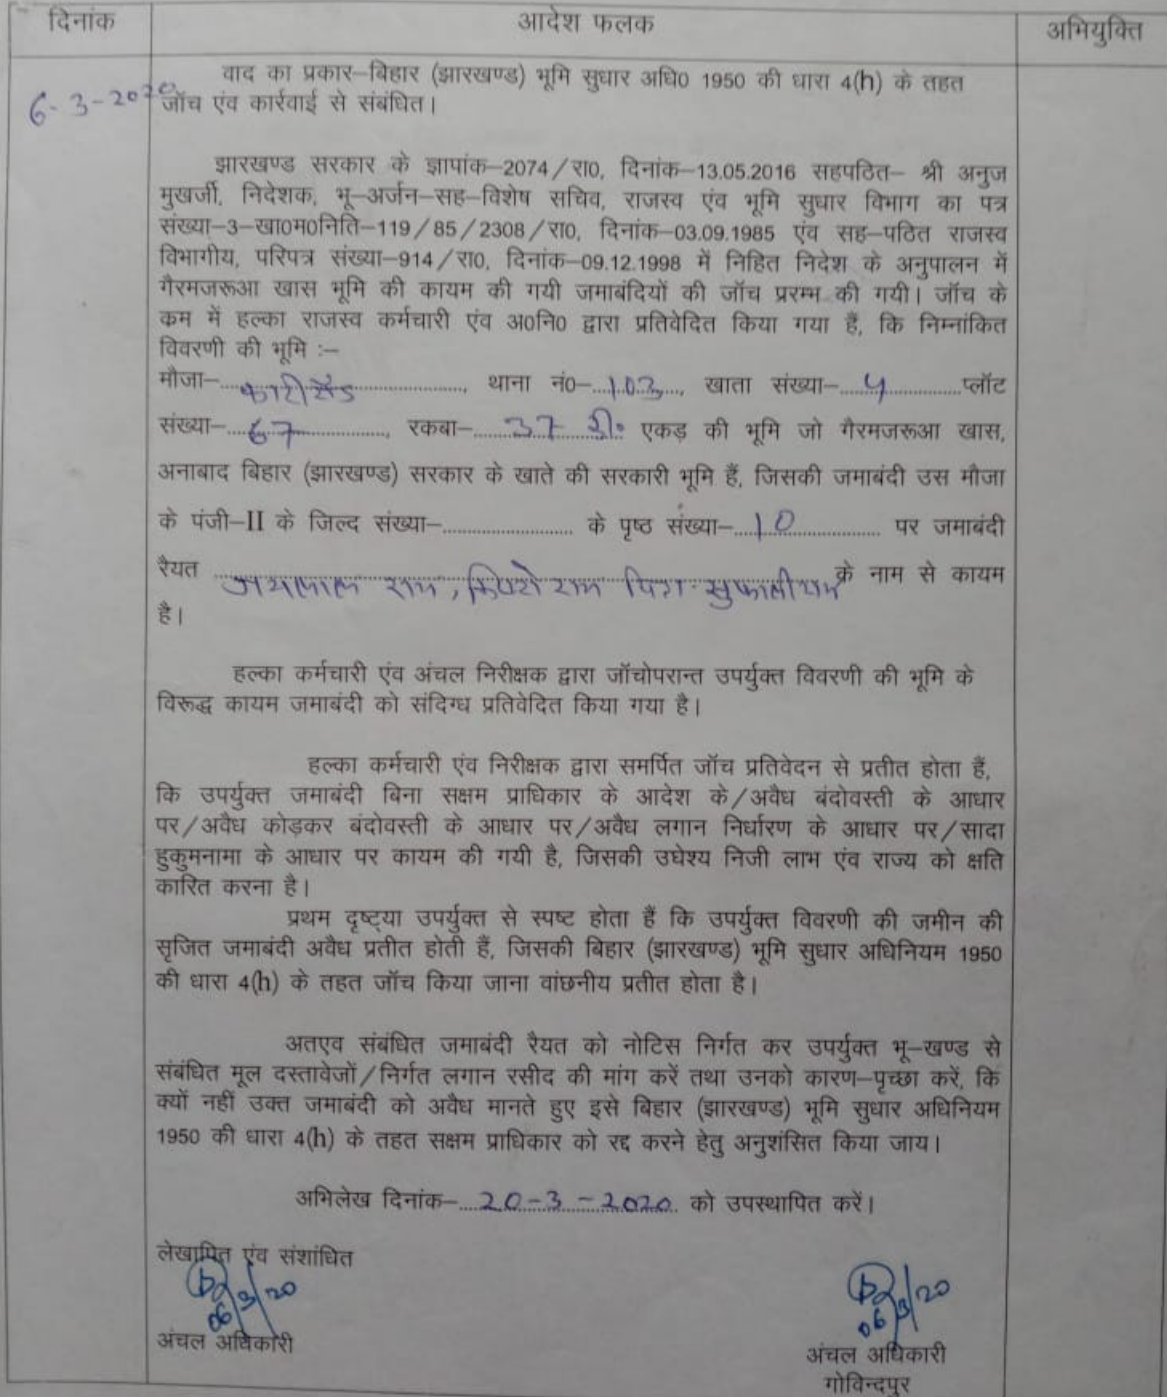 दिनांक
आदेश फलक
अभियुक्ति
6-3-2020
वाद का प्रकार–बिहार (झारखण्ड) भूमि सुधार अधि0 1950 की धारा 4(h) के तहत
जॉच एंव कार्रवाई से संबंधित।
झारखण्ड सरकार के ज्ञापांक–2074/रा0, दिनांक–13.05.2016 सहपठित– श्री अनुज
मुखर्जी, निदेशक, भू–अर्जन–सह–विशेष सचिव, राजस्व एंव भूमि सुधार विभाग का पत्र
संख्या–3–खा0म0निति–119/85/2308/रा0, दिनांक–03.09.1985 एंव सह–पठित राजस्व
विभागीय, परिपत्र संख्या–914/रा0, दिनांक–09.12.1998 में निहित निदेश के अनुपालन में
गैरमजरूआ खास भूमि की कायम की गयी जमाबंदियों की जॉच प्ररम्भ की गयी। जॉच के
कम में हल्का राजस्व कर्मचारी एंव अ0नि0 द्वारा प्रतिवेदित किया गया हैं, कि निम्नांकित
विवरणी की भूमि :–
मौजा–...................., थाना नं0–..103.., खाता संख्या–...4.........प्लॉट
संख्या–...67............, रकबा–....37 डी॰ एकड़ की भूमि जो गैरमजरूआ खास,
अनाबाद बिहार (झारखण्ड) सरकार के खाते की सरकारी भूमि हैं, जिसकी जमाबंदी उस मौजा
के पंजी–II के जिल्द संख्या–.................. के पृष्ठ संख्या–..10............ पर जमाबंदी
रैयत .......... राम, ...... राम पिता ............ के नाम से कायम
है।
हल्का कर्मचारी एंव अंचल निरीक्षक द्वारा जॉचोपरान्त उपर्युक्त विवरणी की भूमि के
विरूद्ध कायम जमाबंदी को संदिग्ध प्रतिवेदित किया गया है।
हल्का कर्मचारी एंव निरीक्षक द्वारा समर्पित जॉच प्रतिवेदन से प्रतीत होता हैं,
कि उपर्युक्त जमाबंदी बिना सक्षम प्राधिकार के आदेश के/अवैध बंदोवस्ती के आधार
पर/अवैध कोड़कर बंदोवस्ती के आधार पर/अवैध लगान निर्धारण के आधार पर/सादा
हुकुमनामा के आधार पर कायम की गयी है, जिसकी उघेश्य निजी लाभ एंव राज्य को क्षति
कारित करना है।
प्रथम दृष्ट्या उपर्युक्त से स्पष्ट होता हैं कि उपर्युक्त विवरणी की जमीन की
सृजित जमाबंदी अवैध प्रतीत होती हैं, जिसकी बिहार (झारखण्ड) भूमि सुधार अधिनियम 1950
की धारा 4(h) के तहत जॉच किया जाना वांछनीय प्रतीत होता है।
अतएव संबंधित जमाबंदी रैयत को नोटिस निर्गत कर उपर्युक्त भू–खण्ड से
संबंधित मूल दस्तावेजों/निर्गत लगान रसीद की मांग करें तथा उनको कारण–पृच्छा करें, कि
क्यों नहीं उक्त जमाबंदी को अवैध मानते हुए इसे बिहार (झारखण्ड) भूमि सुधार अधिनियम
1950 की धारा 4(h) के तहत सक्षम प्राधिकार को रद्द करने हेतु अनुशंसित किया जाय।
अभिलेख दिनांक–...20–3–2020.. को उपस्थापित करें।
लेखापित एंव संशांधित
06/3/20
06/3/20
अंचल अधिकारी
अंचल अधिकारी
गोविन्दपुर